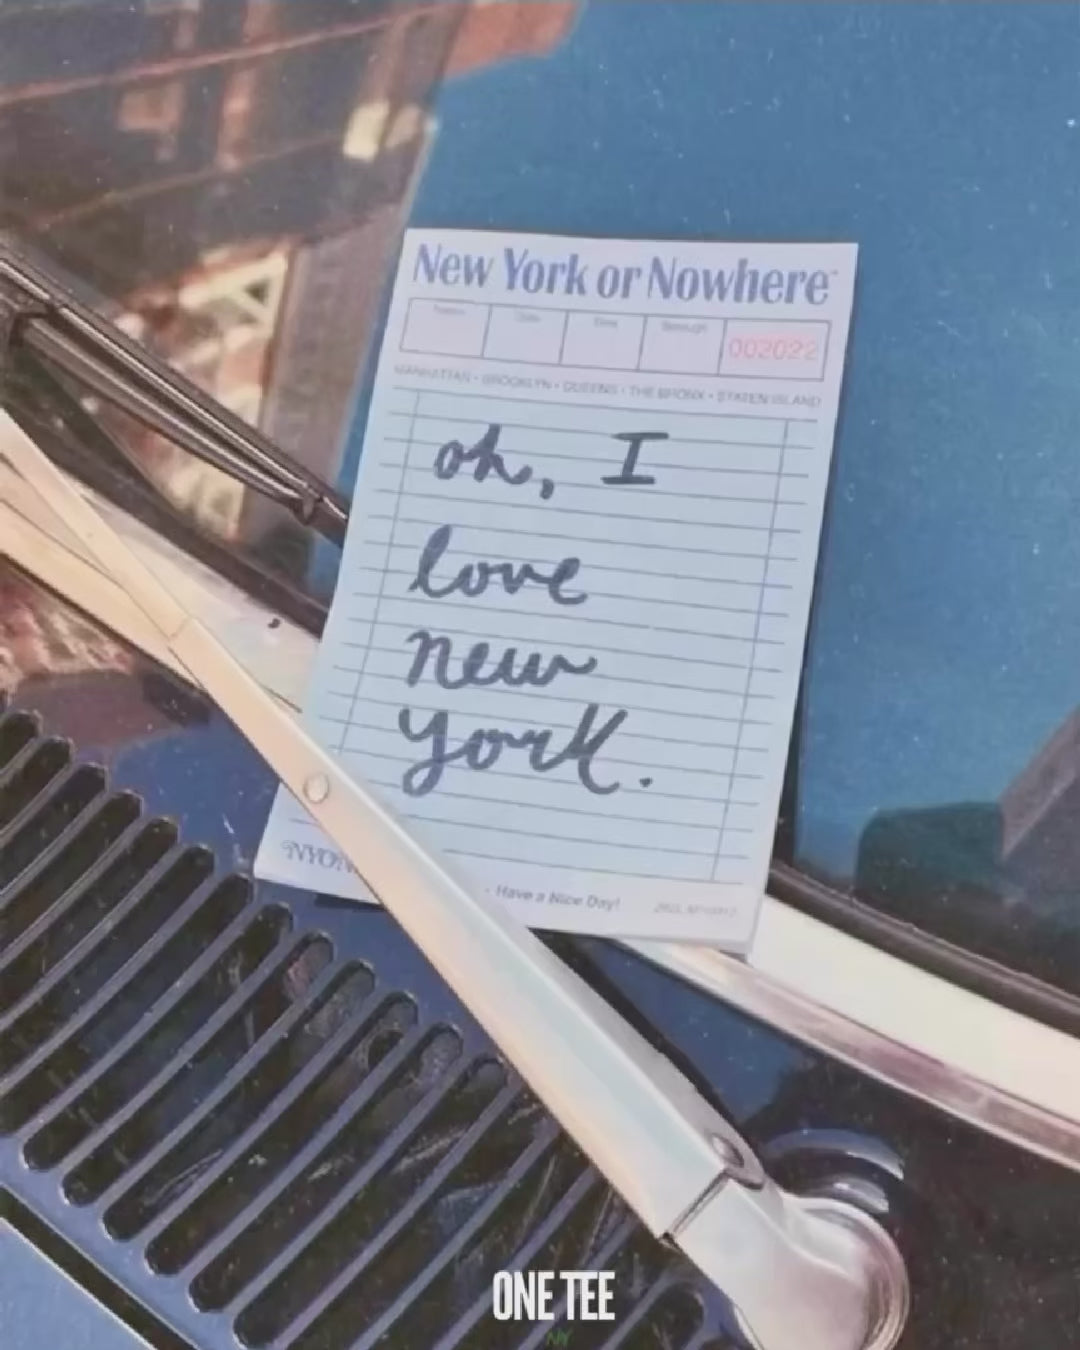 New York or Nowhere
Name Date Time Borough
002022
MANHATTAN • BROOKLYN • QUEENS • THE BRONX • STATEN ISLAND
oh, I
love
new
york.
Have a Nice Day!
ONE TEE
NY